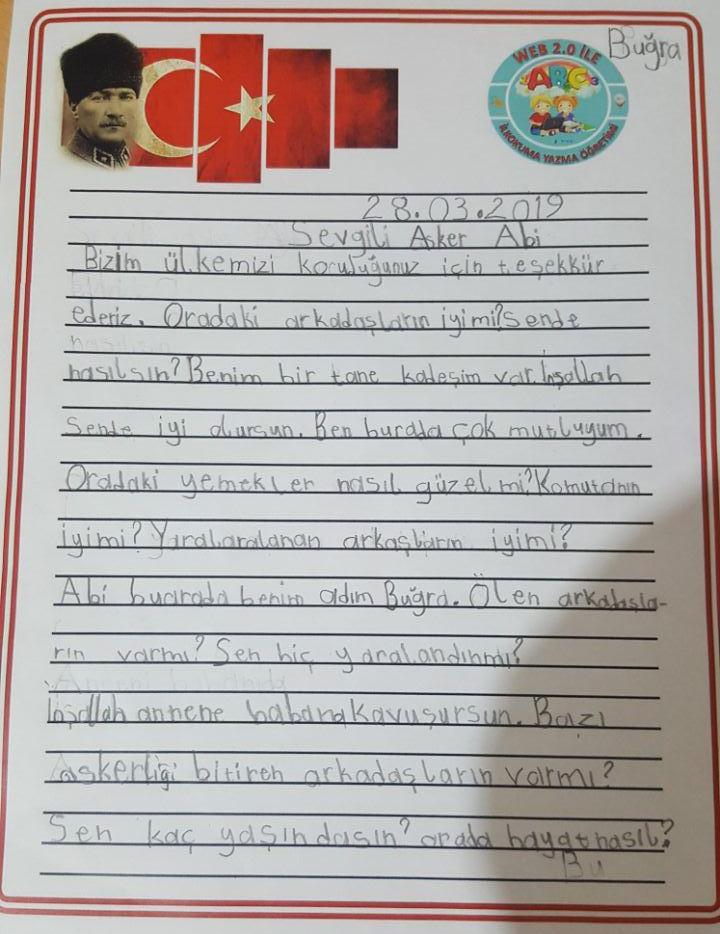 Buğra
WEB 2.0 İLE
ABC
İLKOKUMA YAZMA ÖĞRETİMİ
28.03.2019
Sevgili Asker Abi
Bizim ülkemizi koruduğunuz için teşekkür
ederiz. Oradaki arkadaşların iyimi? Sende
nasılsın? Benim bir tane kaleşim var. İnşallah
Sende iyi olursun. Ben burada çok mutluyum.
Oradaki yemekler nasıl güzel mi? Komutanın
iyimi? Yaralaralanan arkaşların iyimi?
Abi buarada benim adım Buğra. Ölen arkadaşla-
rın varmı? Sen hiç yaralandınmı?
İnşallah annene babana kavuşursun. Bazı
askerliği bitiren arkadaşların varmı?
Sen kaç yaşındasın? orada hayat nasıl?
Bu